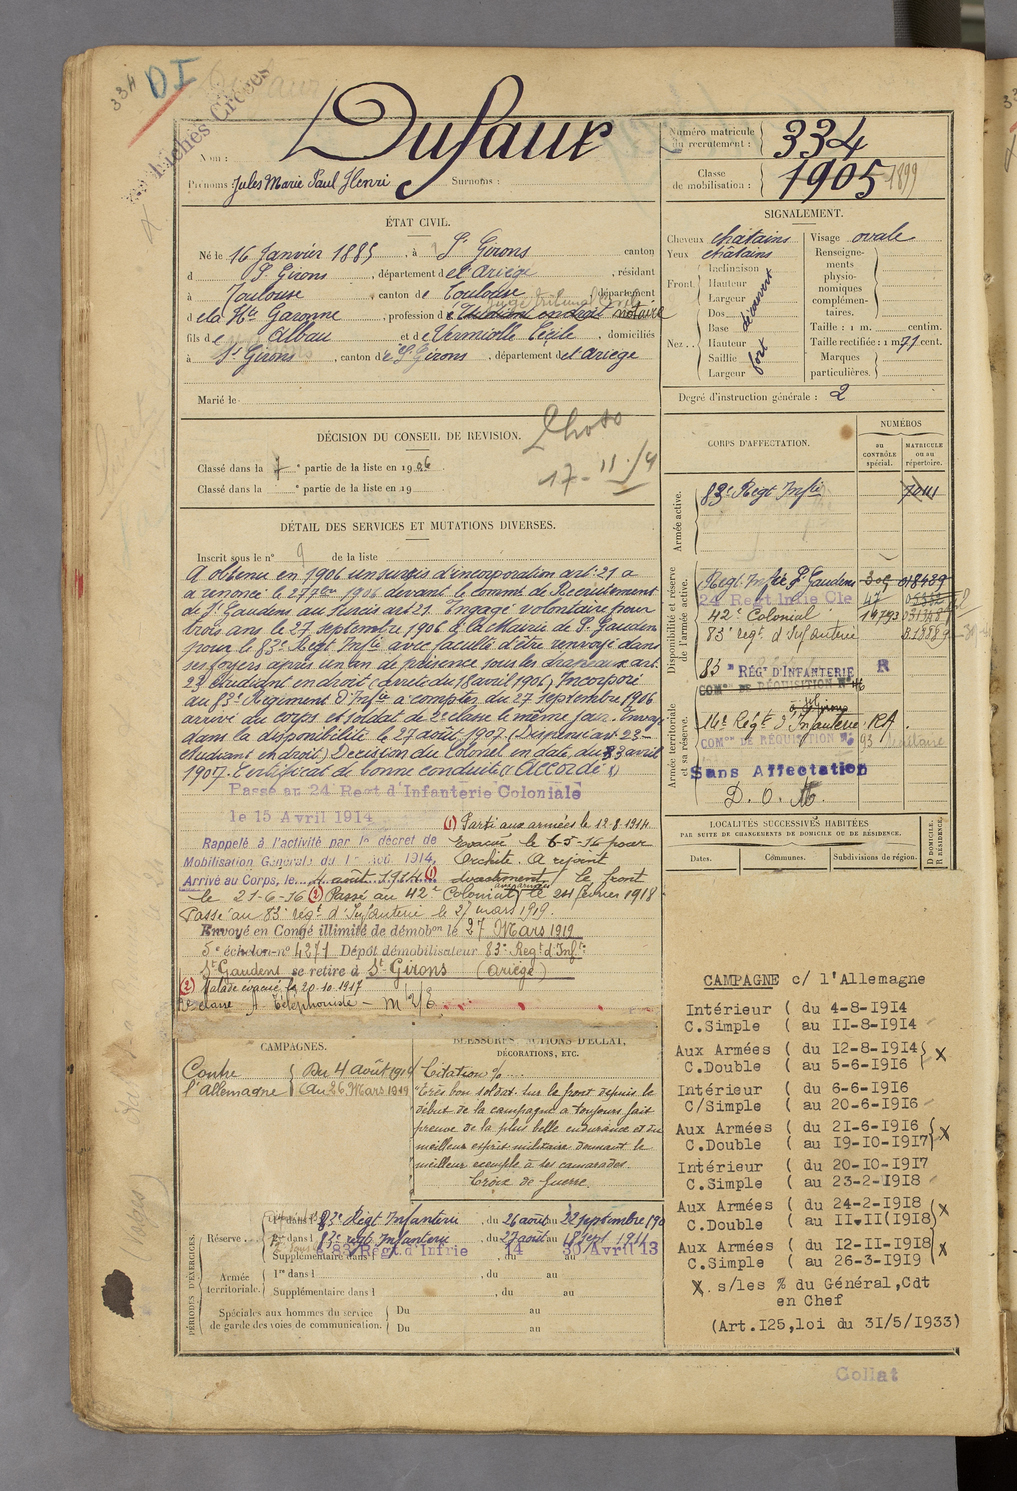 334
DI
Dufaur
Nom :
Prénoms : Jules Marie Paul Henri Surnoms :
Numéro matricule du recrutement : 334
Classe de mobilisation : 1905 1899
ÉTAT CIVIL.
Né le 16 Janvier 1885, à St Girons canton
d St Girons, département de l'Ariège, résidant
à Toulouse, canton de Toulouse, département
de la Hte Garonne, profession d'Etudiant en droit notaire
fils de Alban et de Vermiolle Cécile, domiciliés
à St Girons, canton de St Girons, département de l'Ariège
Marié le
SIGNALEMENT.
Cheveux châtains
Yeux châtains
Front Inclinaison
Hauteur
Largeur
découvert
Nez Dos
Base
Hauteur
Saillie
Largeur
fort
Visage ovale
Renseignements physionomiques complémentaires.
Taille : 1 m. centim.
Taille rectifiée : 1 m 71 cent.
Marques particulières.
Degré d'instruction générale : 2
DÉCISION DU CONSEIL DE REVISION.
Photo
17-11-14
Classé dans la 7e partie de la liste en 1906
Classé dans la e partie de la liste en 19
DÉTAIL DES SERVICES ET MUTATIONS DIVERSES.
Inscrit sous le n° 9 de la liste
A obtenu en 1906 un sursis d'incorporation art. 21 a
a renoncé le 27 7bre 1906 devant le commt de Recrutement
de St Gaudens au sursis art 21. Engagé volontaire pour
trois ans le 27 septembre 1906 à la Mairie de St Gaudens
pour le 83e Régt Infie avec faculté d'être renvoyé dans
ses foyers après un an de présence sous les drapeaux art.
23 étudiant en droit (arrêté du 18 avril 1906) Incorporé
au 83e Régiment d'Infie à compter du 27 septembre 1906
arrivé au corps et soldat de 2e classe le même jour. Envoyé
dans la disponibilité le 27 août 1907. (Dispensé art 23-
étudiant en droit) Décision du Colonel en date du 23 avril
1907. Certificat de bonne conduite "Accordé"
Passé au 24 Régt d'Infanterie Coloniale
le 15 Avril 1914
(1) Parti aux armées le 12-8-1914.
Rappelé à l'activité par le décret de
Mobilisation Générale du 1er Aoû. 1914,
Arrivé au Corps, le 4 août 1914 (1)
Evacué le 6-5-16 pour
Orchite. A rejoint
directement le front
le 21-6-16 (2) Passé au 42e Colonial aux armées le 24 février 1918
Passé au 83e régt d'Infanterie le 27 mars 1919.
Envoyé en Congé illimité de démobon le 27 Mars 1919
5e échelon n° 4271 Dépôt démobilisateur 83e Régt d'Infie
St Gaudens se retire à St Girons (Ariège)
(2) Malade évacué le 20.10.1917
CORPS D'AFFECTATION.
NUMÉROS
au CONTRÔLE spécial.
MATRICULE ou au répertoire.
Armée active.
83e Régt Infie
Disponibilité et réserve de l'armée active.
Régt Infie St Gaudens 018429
24 Régt Infie Cle 47
42e Colonial 14793
83e régt d'Infanterie
83e RÉGT D'INFANTERIE R
Armée territoriale et sa réserve.
COMon DE RÉQUISITION N° 46
à St Girons
14e Régt d'Infanterie RA.
COMon DE RÉQUISITION N° 93
Sans Affectation
D. O. M.
LOCALITÉS SUCCESSIVES HABITÉES
PAR SUITE DE CHANGEMENTS DE DOMICILE OU DE RÉSIDENCE.
Dates. Communes. Subdivisions de région.
D DOMICILE. R RÉSIDENCE.
CAMPAGNES.
Contre l'Allemagne
Du 4 août 1914
Au 26 Mars 1919
BLESSURES, ACTIONS D'ÉCLAT,
DÉCORATIONS, ETC.
Citation %....
"Très bon soldat. Sur le front depuis le
début de la campagne a toujours fait
preuve de la plus belle endurance et du
meilleur esprit militaire donnant le
meilleur exemple à ses camarades.
Croix de Guerre.
CAMPAGNE c/ l'Allemagne
Intérieur ( du 4-8-1914
C.Simple ( au 11-8-1914
Aux Armées ( du 12-8-1914 X
C.Double ( au 5-6-1916
Intérieur ( du 6-6-1916
C/Simple ( au 20-6-1916
Aux Armées ( du 21-6-1916 X
C.Double ( au 19-10-1917
Intérieur ( du 20-10-1917
C.Simple ( au 23-2-1918
Aux Armées ( du 24-2-1918 X
C.Double ( au II.II(1918
Aux Armées ( du 12-11-1918 X
C.Simple ( au 26-3-1919
X. s/les % du Général,Cdt
en Chef
(Art.I25,loi du 31/5/1933)
PÉRIODES D'EXERCICES.
Réserve
1re dans l 83e Régt Infanterie, du 26 août au 22 septembre 190
2e dans l 83e régt Infanterie, du 27 août au 18 sept 1911
Supplémentaire dans l 83 Régt d'Infrie 14 30 Avril 13
Armée territoriale.
1re dans l , du au
Supplémentaire dans l , du au
Spéciales aux hommes du service
de garde des voies de communication.
Du au
Du au
Collat